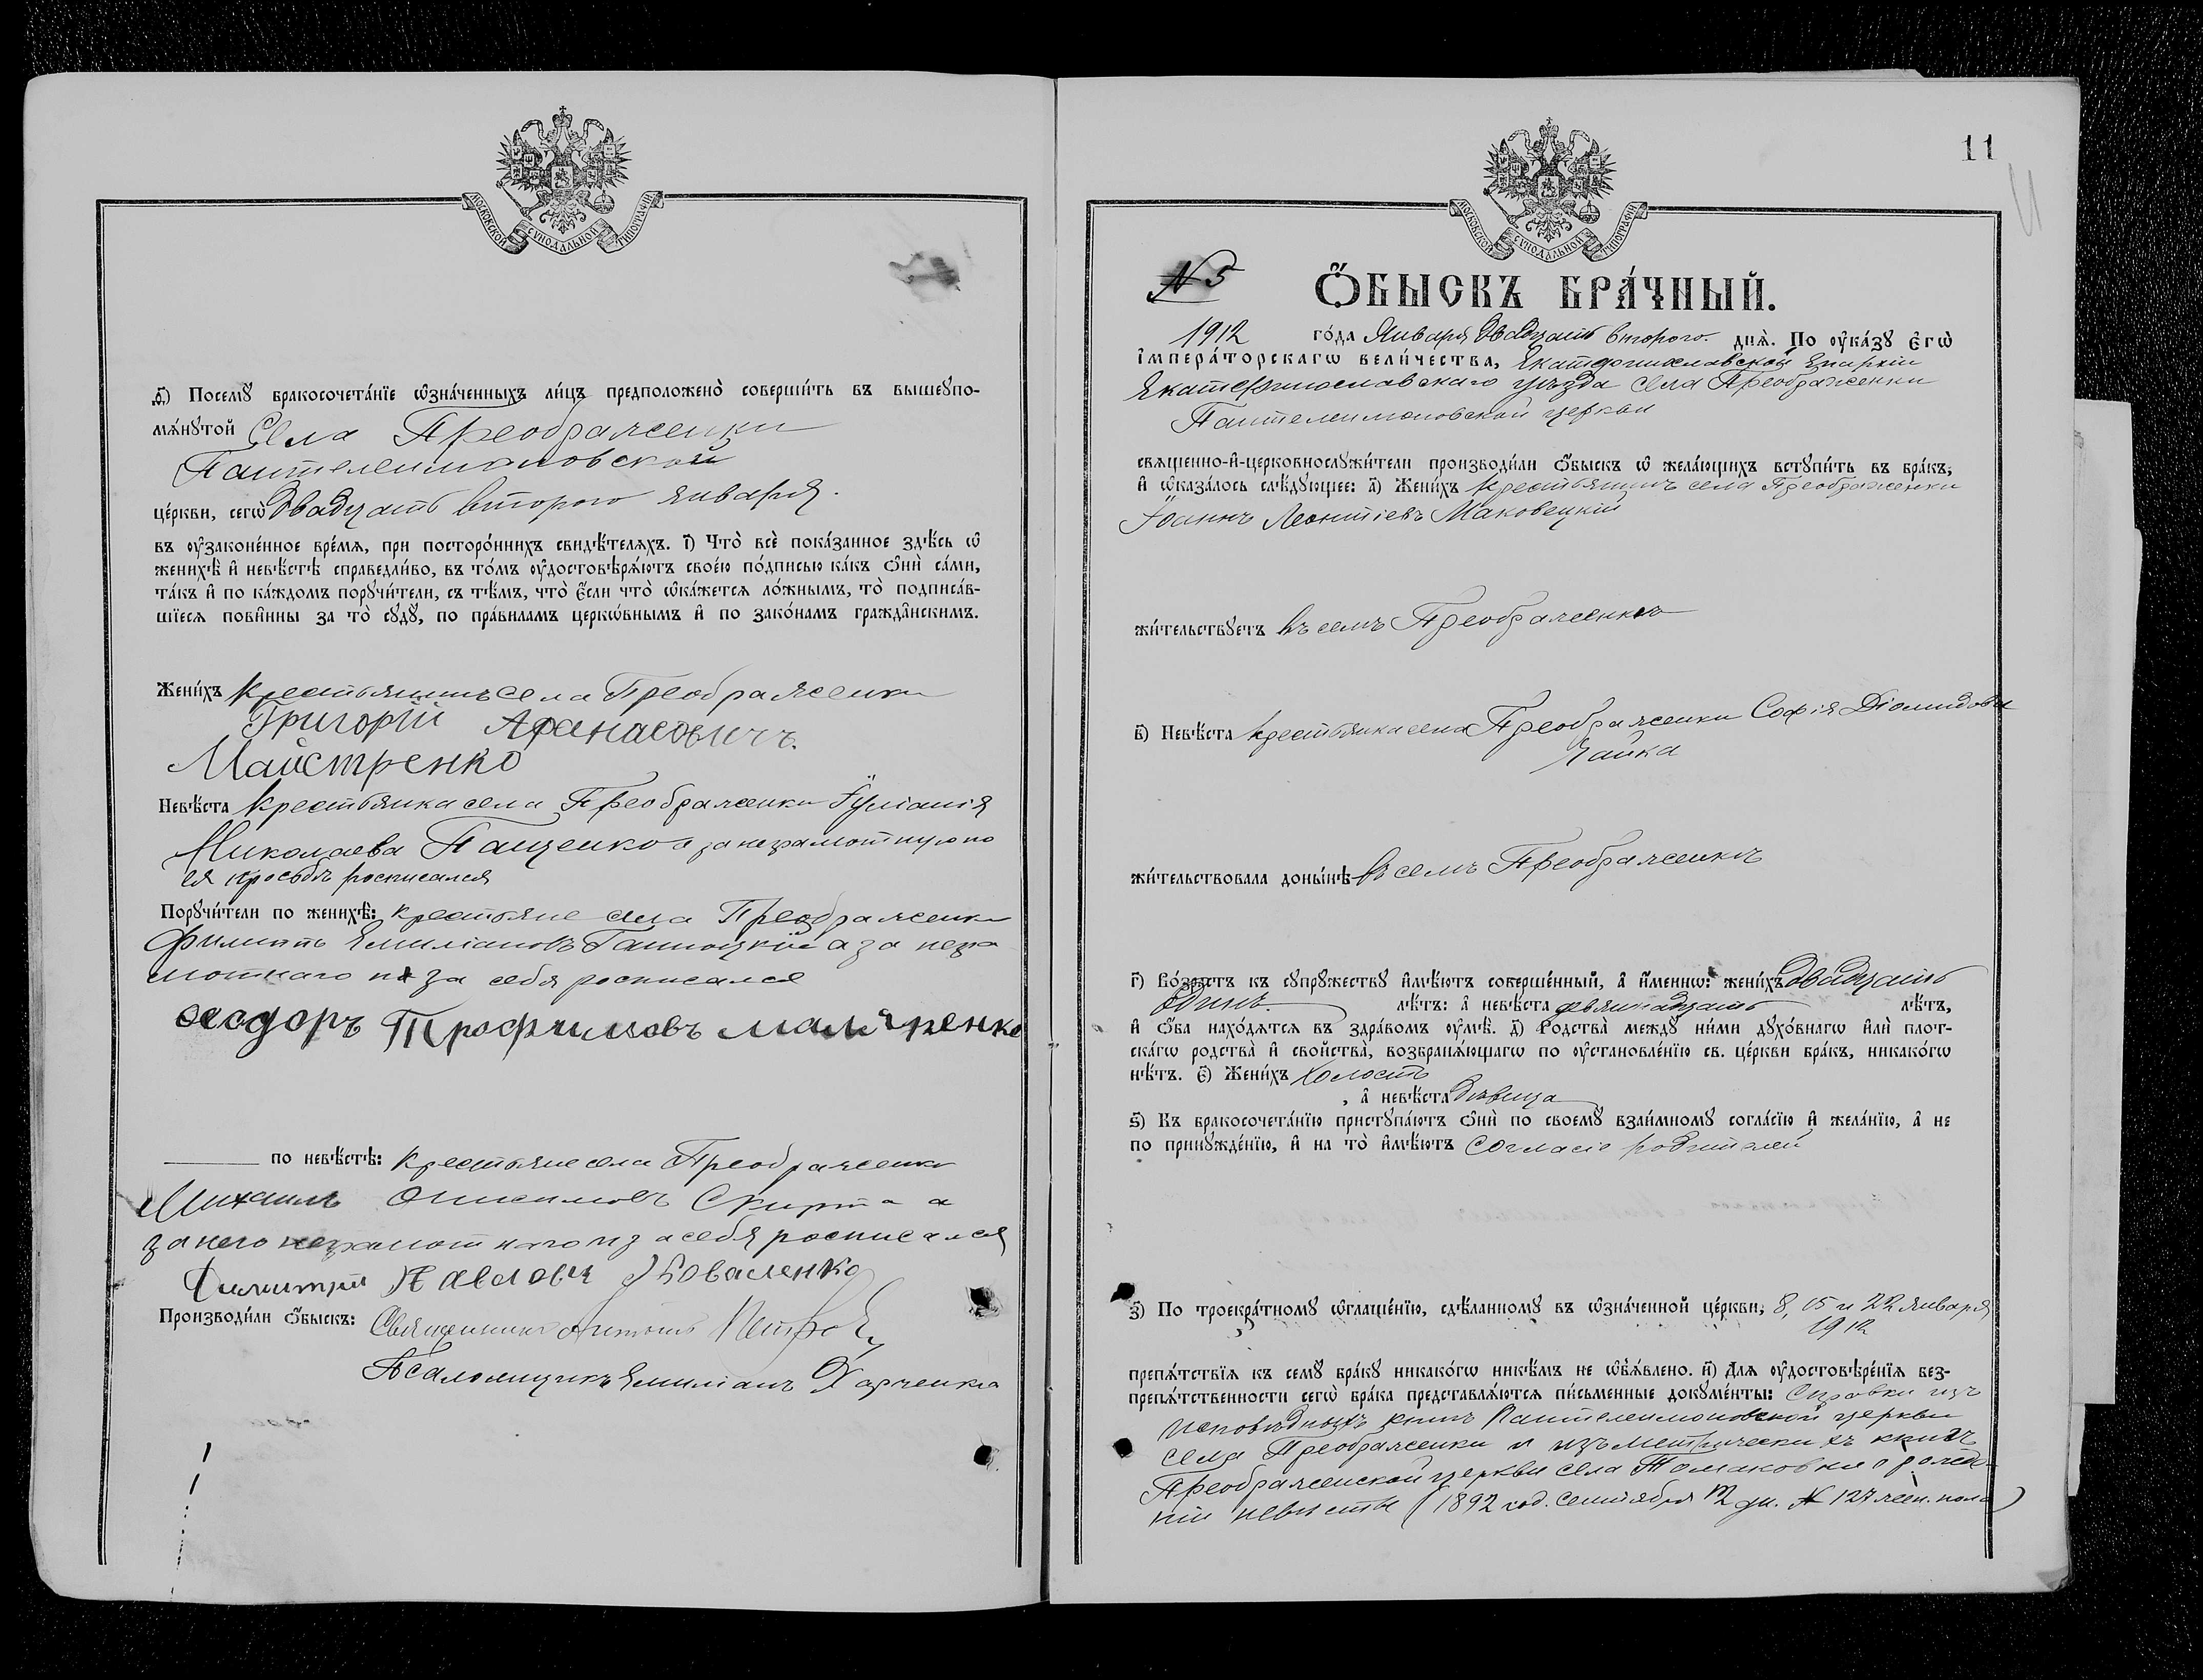 МОСКОВСКОЙ СѴНОДАЛЬНОЙ ТИПОГРАФІИ
ѳ҃) Посемꙋ̀ бракосочета́нїе ѡ҆зна́ченныхъ ли́цъ предположено̀ соверши́ть въ вышеꙋпо-
мѧ́нꙋтой Села Преображенки
Пантелеимоновской
це́ркви, сегѡ̀ двадцать второго января.
въ ᲂу҆зако́не́нное вре́мѧ, при посторо́ннихъ свидѣ́телѧхъ. і҃) Что̀ всѐ пока́занное здѣ́сь ѡ҆
женихѣ̀ и҆ невѣ́стѣ справедли́во, въ то́мъ ᲂу҆достовѣрѧ́ютъ свое́ю по́дписью ка́къ ѻ҆нѝ са́ми,
та́къ и҆ по ка́ждомъ порꙋчи́тели, съ тѣ́мъ, что̀ є҆́сли что̀ ѡ҆ка́жетсѧ ло́жнымъ, то̀ подписа́в-
шїесѧ пови́нны за то̀ сꙋдꙋ̀, по пра́виламъ церкѡ́внымъ и҆ по зако́намъ гражда́нскимъ.
Жени́хъ крестьянинъ села Преображенки
Григорій Афанасовичъ.
Майстренко
Невѣ́ста крестьянка села Преображенки Іуліанія
Николаева Пащенко а за неграмотную по
ея просьбѣ росписался
Порꙋчи́тели по женихѣ̀: крестьяне села Преображенки
Филиппъ Емиліановъ а за негра
мотнаго и за себя росписался
Ѳеодоръ Трофимовъ маляренко
по невѣ́стѣ: крестьяне села Преображенки
Михаилъ Онисимовъ Скирта а
за него неграмотнаго и за себя росписался
Димитрій Павловъ Коваленко
Производи́ли ѻ҆́быскъ: Священникъ Антоній Петров
Псаломщикъ Емиліанъ Харченко
11
МОСКОВСКОЙ СѴНОДАЛЬНОЙ ТИПОГРАФІИ
№ 5
Ѻ҆́БЫСКЪ БРА́ЧНЫЙ.
1912 го́да Января двадцать второго. днѧ̀. По ᲂу҆ка́зꙋ Є҆гѡ̀
І҆мпера́торскагѡ вели́чества, Екатеринославской Епархіи
Екатеринославскаго уѣзда села Преображенки
Пантелеимоновской церкви
свѧщенно-и҆-церковнослꙋжи́тели производи́ли ѻ҆́быскъ ѡ҆ жела́ющихъ встꙋпи́ть въ бра́къ,
и҆ ѡ҆каза́лось слѣ́дꙋющее: а҃) Жени́хъ крестьянинъ села Преображенки
Іоаннъ Леонтіевъ Маковецкій
жи́тельствꙋетъ въ селѣ Преображенкѣ
в҃) Невѣ́ста крестьянка села Преображенки Софія Діомидова
Чайка
жи́тельствовала доны́нѣ въ селѣ Преображенкѣ
г҃) Во́зрастъ къ сꙋпрꙋ́жествꙋ и҆мѣ́ютъ совершéнный, а҆ и҆́менно: жени́хъ двадцать
одинъ. лѣ́тъ: а҆ невѣ́ста девятнадцать лѣ́тъ,
и҆ ѻ҆́ба нахо́дѧтсѧ въ здра́вомъ ᲂу҆мѣ̀. д҃) Родства̀ междꙋ̀ ни́ми дꙋхо́внагѡ и҆лѝ плот-
ска́гѡ родства̀ и҆ свойства̀, возбранѧ́ющагѡ по ᲂу҆становле́нїю св. це́ркви бра́къ, никако́гѡ
нѣ́тъ. є҃) Жени́хъ холостъ
, а҆ невѣ́ста дѣвица
ѕ҃) Къ бракосочета́нїю пристꙋпа́ютъ ѻ҆нѝ по своемꙋ̀ взаи́мномꙋ согла́сїю и҆ жела́нїю, а҆ не
по принꙋжде́нїю, и҆ на то̀ и҆мѣ́ютъ согласіе родителей
з҃) По троекра́тномꙋ ѡ҆глаше́нїю, сдѣ́ланномꙋ въ ѡ҆зна́ченной це́ркви, 8, 15 и 22 января
1912
препѧ́тствїѧ къ семꙋ̀ бра́кꙋ никако́гѡ никѣ́мъ не ѡ҆б̾ѧ́влено. и҃) Длѧ ᲂу҆достовѣре́нїѧ без-
препѧ́тственности сегѡ̀ бра́ка представлѧ́ютсѧ пи́сьменные докꙋме́нты: Справки изъ
исповѣдныхъ книгъ Пантелеимоновской церкви
села Преображенки и изъ метрическихъ книгъ
Преображенской церкви села Томаковки о рожде-
ніи невѣсты (1892 год. сентября 12 дн. № 127 жен. пола)